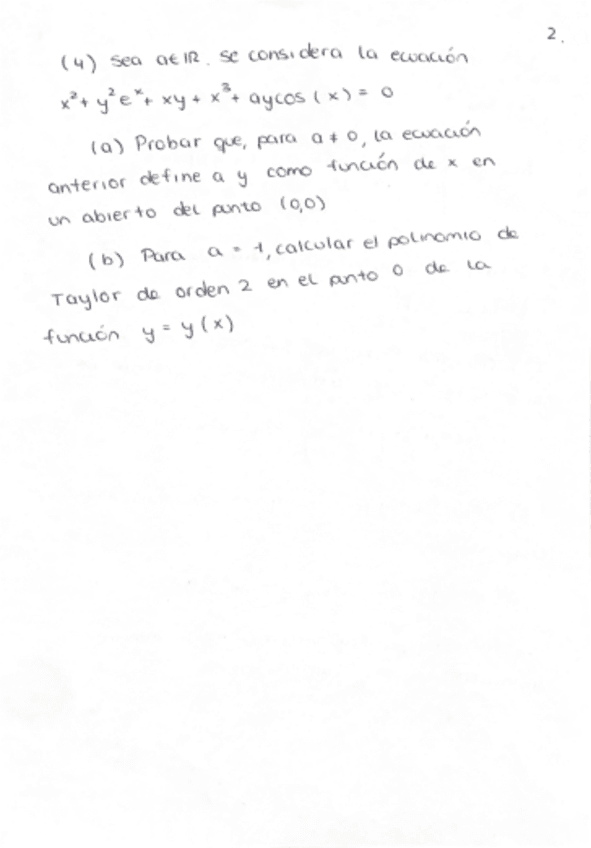 2.
(4) Sea a∈ℝ. Se considera la ecuación
x² + y²eˣ + xy + x³ + aycos(x) = 0
(a) Probar que, para a ≠ 0, la ecuación
anterior define a y como función de x en
un abierto del punto (0,0)
(b) Para a = 1, calcular el polinomio de
Taylor de orden 2 en el punto 0 de la
función y = y(x)